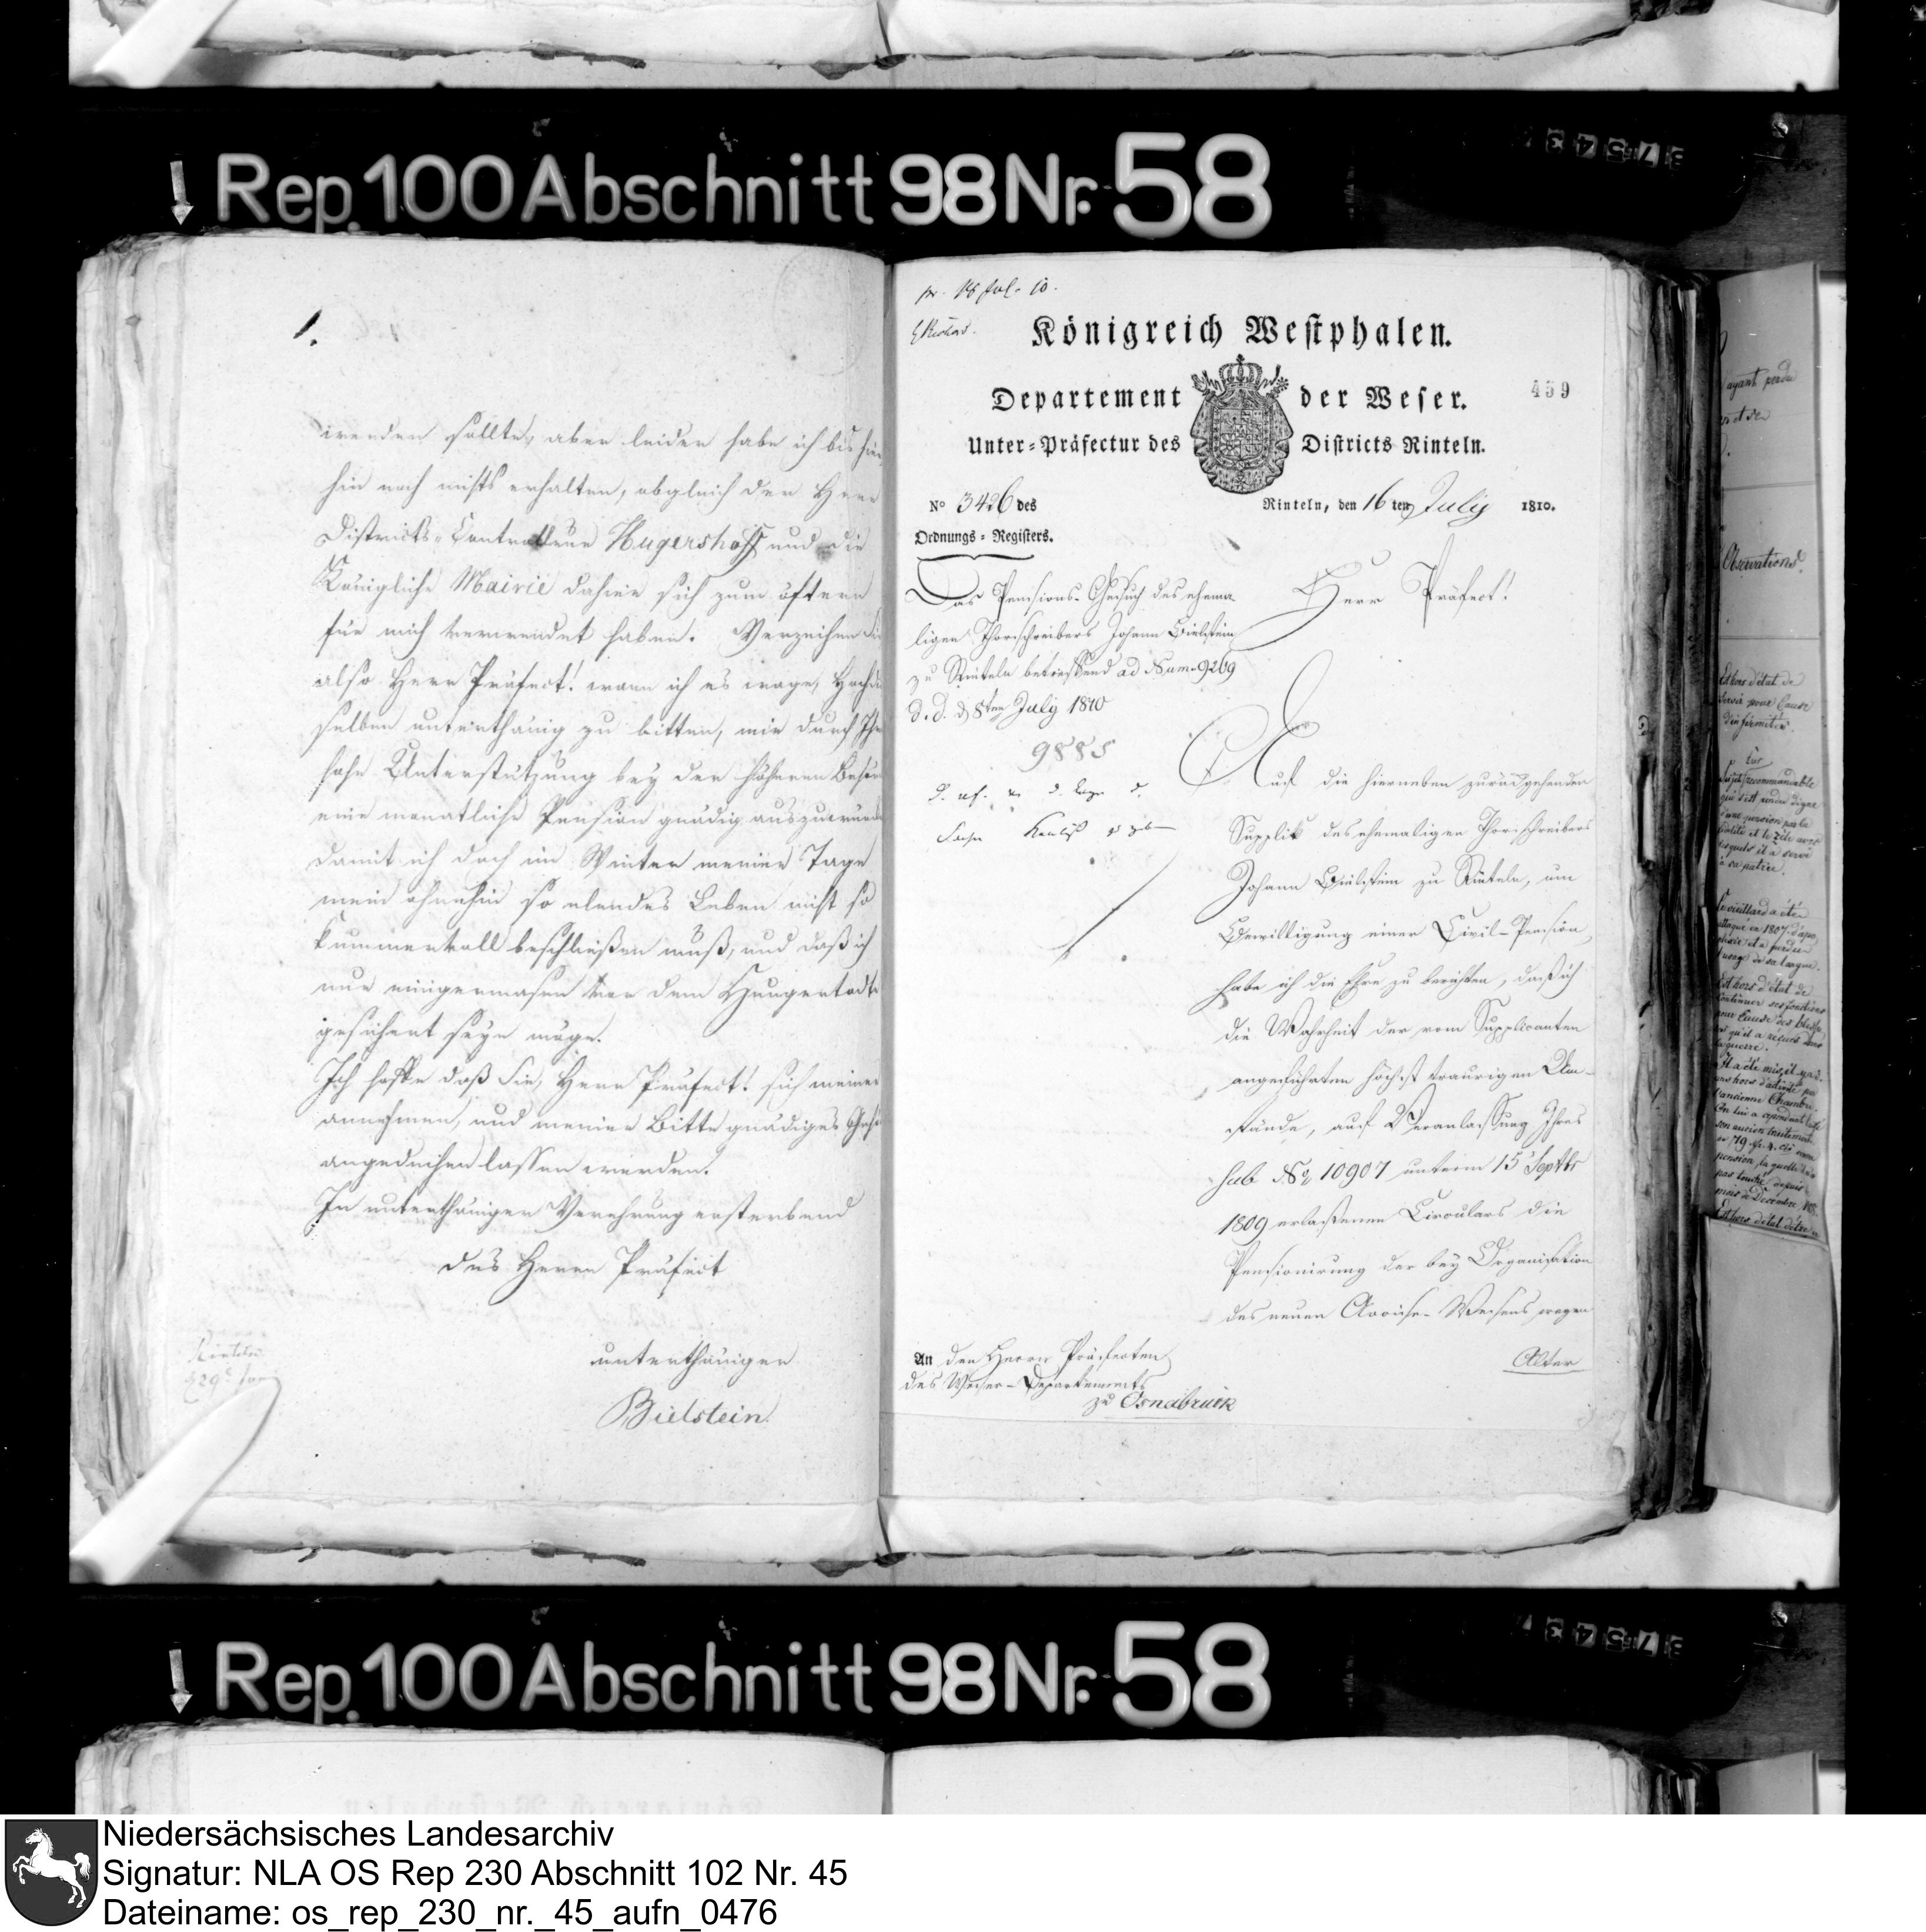 Rep. 100 Abschnitt 98 Nr. 58
1.
werden sollte, aber leider habe ich bis hier
hin noch nichts erhalten, obgleich der Herr
Districts-Controlleur Hugershoff und die
Königliche Mairie dahier sich zum öftern
für mich verwendet haben. Verzeihen Sie
also Herr Präfect! wann ich es wage, Hochdie
selben unterthänig zu bitten, mir durch Ihre
hohe Unterstützung bey der höheren Behörde
eine monatliche Pension gnädig auszuwürken
damit ich doch im Winter meiner Tage
mein ohnehin so elendes Leben nicht so
kummervoll beschließen muß, und daß ich
nur einigermasen vor dem Hungertodte
gesichert seyn möge.
Ich hoffe daß Sie, Herr Präfect! sich meiner
annehmen, und meiner Bitte gnädiges Gehör
angedeihen lassen werden.
In unterthäniger Verehrung ersterbend
des Herrn Präfect
Rinteln
unterthäniger
Bielstein.
pr. 18 Jul. 10.
Königreich Westphalen.
Departement der Weser.
459
Unter-Präfectur des Districts Rinteln.
No 3426 des
Ordnungs-Registers.
Rinteln, den 16ten July 1810.
Das Pensions-Gesuch des ehema-
ligen Thorschreibers Johann Bielstein
zu Rinteln betreffend ad Num. 9269
d. d. 8ten July 1810
9885
Herr Präfect!
Auf die hierneben zurückgehender
Supplik des ehemaligen Thorschreibers
Johann Bielstein zu Rinteln, um
Bewilligung einer Civil-Pension,
habe ich die Ehre zu berichten, daß ich
die Wahrheit der vom Supplicanten
angeführten höchst traurigen Um-
stände, auf Veranlassung Ihres
sub No. 10907 unterm 15 Septbr
1809 erlaßenen Circulars die
Pensionirung der bey Organisation
des neuen Accise-Wesens wegen
Alter
An den Herrn Präfecten
des Weser-Departements
zu Osnabrück
ayant perdu
Observations.
Est hors d'état de
servir pour Cause
d'infirmités.
Rep. 100 Abschnitt 98 Nr. 58
Niedersächsisches Landesarchiv
Signatur: NLA OS Rep 230 Abschnitt 102 Nr. 45
Dateiname: os_rep_230_nr._45_aufn_0476